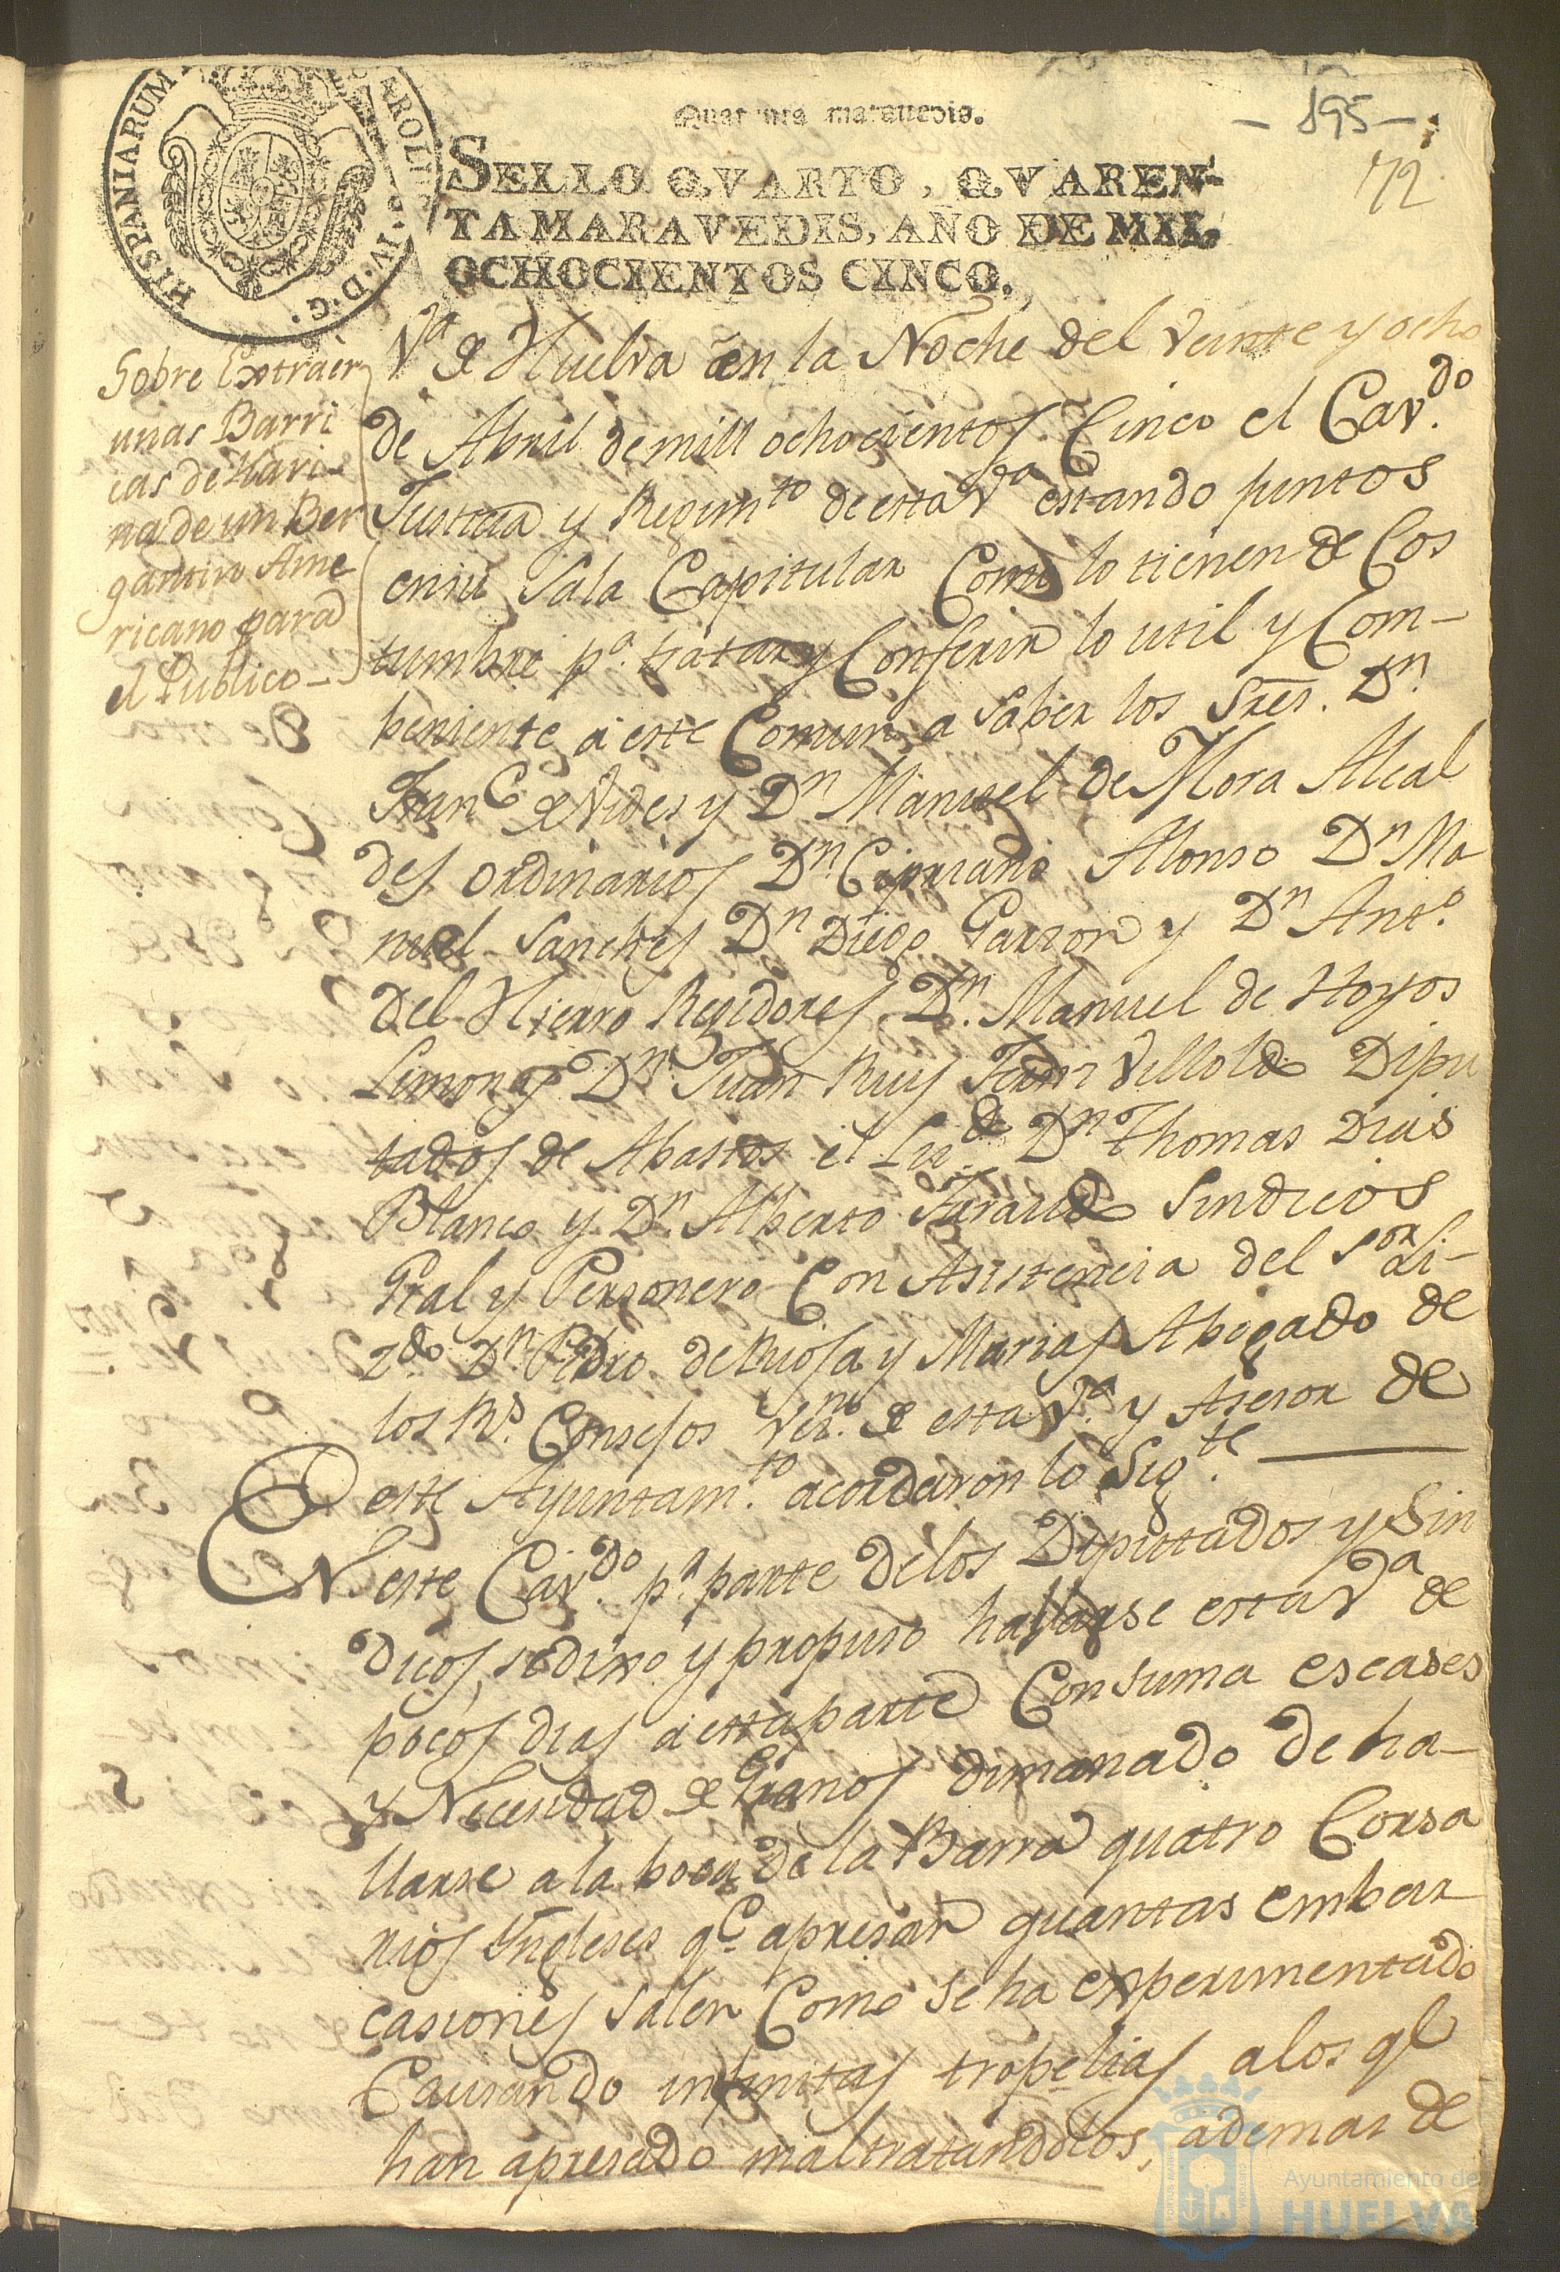 HISPANIARUM
CAROLUS IV. D. G.
Quarenta maravedis.
- 195 -
72
SELLO QVARTO, QVAREN-
TA MARAVEDIS, AÑO DE MIL
OCHOCIENTOS CINCO.
Sobre Extraer
unas Barri
cas de Hari
na de un Ber
gantin Ame
ricano para
el Publico
Vª de Huelva en la Noche del Veinte y ocho
de Abril de mill ochocientos Cinco el Cavdo.
Justicia y Regimto de esta Vª estando juntos
en su Sala Capitular Como lo tienen de Cos
tumbre pª. tratar y Conferir lo util y Com-
beniente a este Comun, a saber los Sres. Dn.
Franco de Vides y Dn Manuel de Mora Alcal
des ordinarios Dn Cipriano Alonso Dn Ma
nuel Sanches Dn Diego Garzon y Dn Anto.
Del Hierro Regidores Dn. Manuel de Hoyos
Limon y Dn. Juan Ruiz Villoldo Dipu
tados de Abastos el Licdo Dn Thomas Dias
Blanco y Dn Alberto Sindicos
Gral y Personero Con Asistencia del Sor Li-
zdo. Dn. Pedro de Riosa y Marias Abogado de
los Rs. Consejos Vecno. de esta Vª. y Asesor de
este Ayuntamto. acordaron lo Sigte.
EN este Cavdo. pr. parte de los Diputados y Sin
dicos, se dixo y propuso hallarse esta Vª de
pocos dias a esta parte Con suma escases
y Necesidad de Granos dimanado de ha-
llarse a la boca de la Barra quatro Corsa
rios Ingleses qe. apresan quantas embar
casiones salen Como se ha experimentado
Causando infinitas tropelias a los qe
han apresado maltratandolos, ademas de
Ayuntamiento de
HUELVA